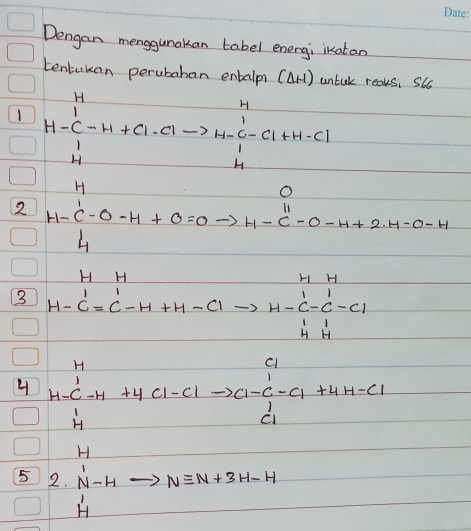 Date:
Dengan menggunakan tabel energi ikatan
tentukan perubahan entalpi (ΔH) untuk reaksi sbb
1
H H
H-C-H + Cl-Cl → H-C-Cl + H-Cl
H H
2
H O
H-C-O-H + O=O → H-C-O-H + 2.H-O-H
H
3
H H H H
H-C=C-H + H-Cl → H-C-C-Cl
H H
4
H Cl
H-C-H + 4 Cl-Cl → Cl-C-Cl + 4H-Cl
H Cl
5
H
2. N-H → N≡N + 3H-H
H